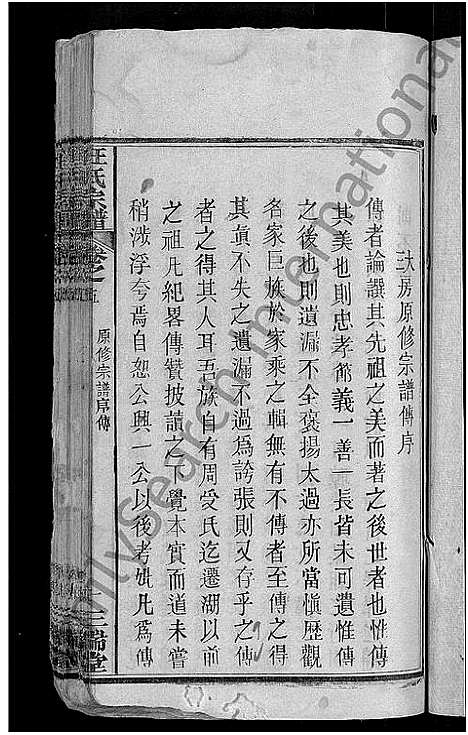 三大房原修宗譜傳序
傳者論譔其先祖之美而著之後世者也惟傳
其美也則忠孝節義一善一長皆未可遺惟傳
之後也則遺漏不全褒揚太過亦所當愼歷觀
名家巨族於家乘之輯無有不傳者至傳之得
其眞不失之遺漏不過為誇張則又存乎之傳
者之得其人耳吾族自有周受氏迄遷湖以前
之祖凡紀畧傳贊披讀之下覺本實而道未嘗
稍涉浮夸焉自恕公興一公以後考妣凡為傳
汪氏宗譜
卷之五
原修宗譜序傳
三瑞堂
FamilySearch International